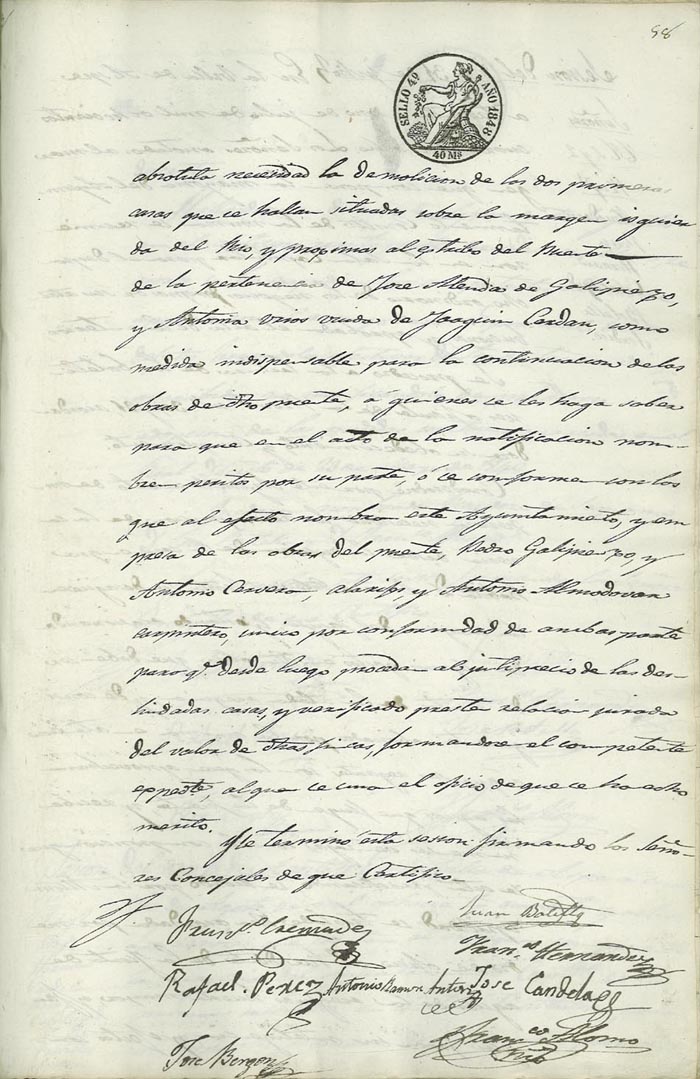 58
SELLO 4º AÑO 1848
40 Ms
absoluta necesidad la demolicion de las dos primeras
casas que ce hallan situadas sobre la margen isquier
da del Rio, y procsimas al estribo del Puente
de la pertenencia de Jose Menda de Galipienzo,
y Antonia viuda de Joaquin Cerdan, como
medida indispensable para la continuacion de las
obras de dho puente, á quienes ce les haga saber
para que en el acto de la notificacion nom-
bren peritos por su parte, ó ce conformen con los
que al efecto nombra este Ayuntamiento, y em
presa de las obras del puente, Pedro Galipienzo, y
Antonio Cervera, alarifes, y Antonio Almodovar
carpintero, unico por conformidad de ambas parte
para q.e desde luego procedan al justiprecio de las des-
lindadas casas, y verificado preste relacion jurada
del valor de dhas fincas, formandose el competente
expedte, al que ce una el oficio de que ce ha echo
merito.
Y se terminó esta sesion firmando los Seño-
res Concejales de que Certifico
Franco Cremades
Juan Botella
Frano Hernandez
Rafael Perez Antonio Ramon Antón Jose Candela
Jose Bergon
Franco Alonso